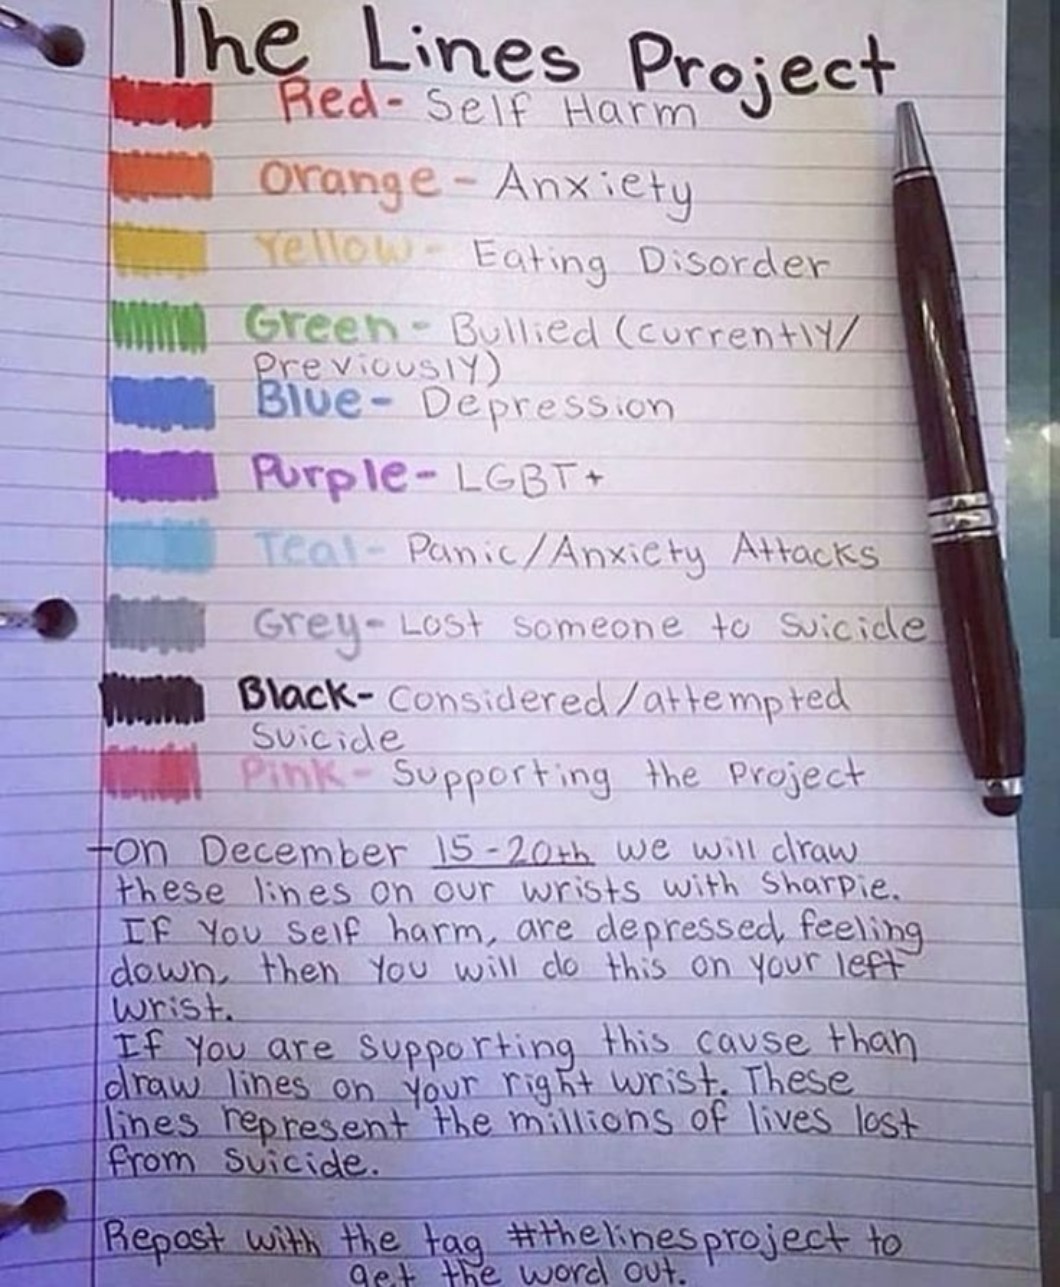 The Lines Project
Red- Self Harm
Orange - Anxiety
Yellow - Eating Disorder
Green - Bullied (currently/
Previously)
Blue- Depression
Purple- LGBT+
Teal- Panic/Anxiety Attacks
Grey- Lost someone to Suicide
Black- Considered/attempted
Suicide
Pink- Supporting the Project
-on December 15-20th we will draw
these lines on our wrists with Sharpie.
If You Self harm, are depressed, feeling
down, then You will do this on your left
wrist.
If you are supporting this cause than
draw lines on your right wrist. These
lines represent the millions of lives lost
from Suicide.
Repost with the tag #thelinesproject to
get the word out.